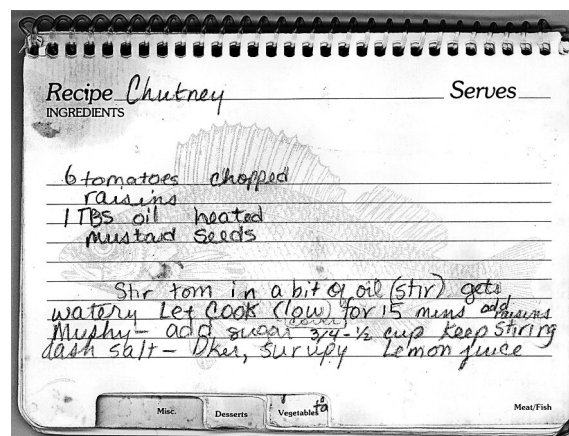 Recipe Chutney Serves
INGREDIENTS
6 tomatoes chopped
raisins
1 TBS oil heated
mustard seeds
Stir tom in a bit of oil (stir) gets
watery Let Cook (low) for 15 mins add raisins
Mushy - add sugar (cover) 3/4 - 1/2 cup Keep Stiring
dash salt - Dker, surupy Lemon juice
Misc. Desserts Vegetables Meat/Fish